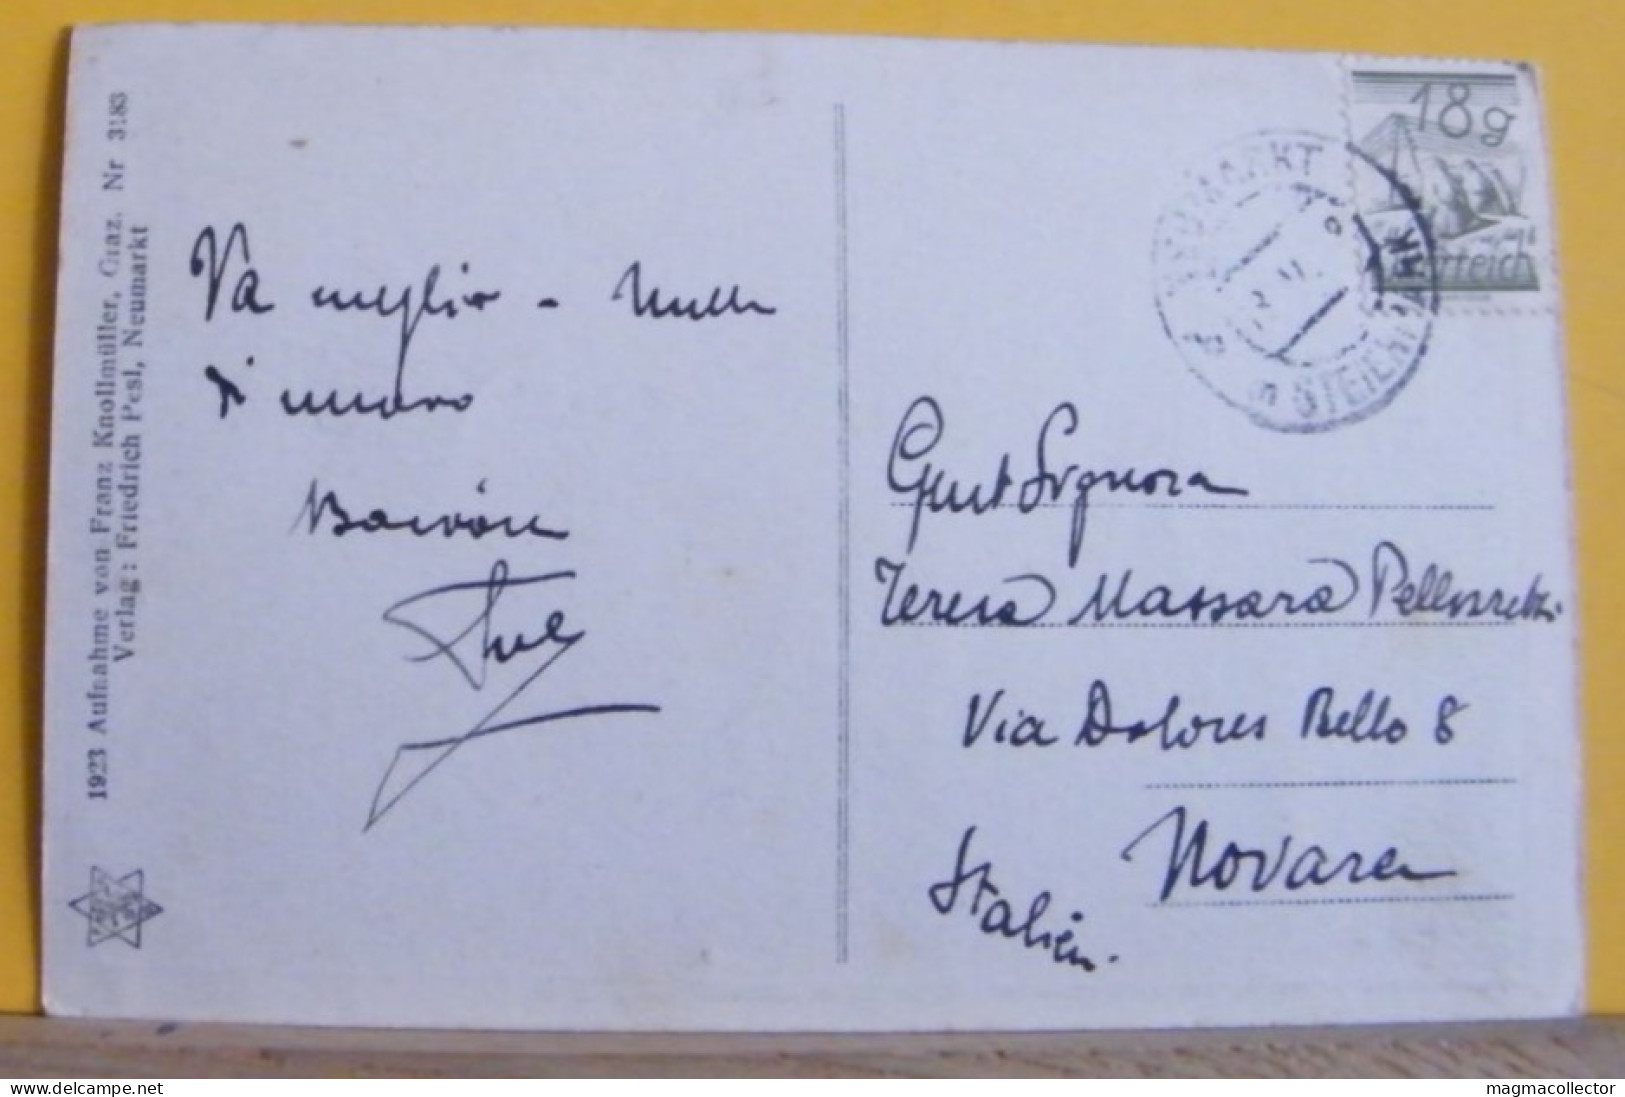 1923 Aufnahme von Franz Knollmüller, Graz. Nr 3183
Verlag : Friedrich Pesl, Neumarkt
Va meglio - Nulla
di nuovo
18g
Österreich
NEUMARKT
STEIERMARK
Gent Signora
Teresa Massara
Via Dolores Bello 8
Novara
Italien.
delcampe.net
magmacollector